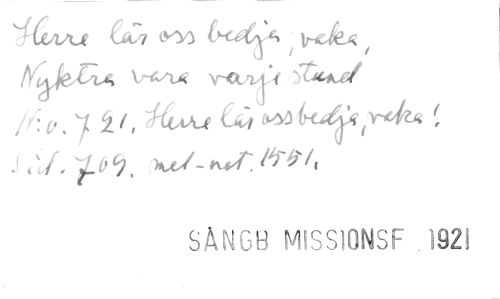 Herre lär oss bedja, vaka,
Nyktra vara varje stund
N:o. 721. Herre lär oss bedja, vaka!
Sid. 709. mel-not. 1551.
SÅNGB MISSIONSF 1921